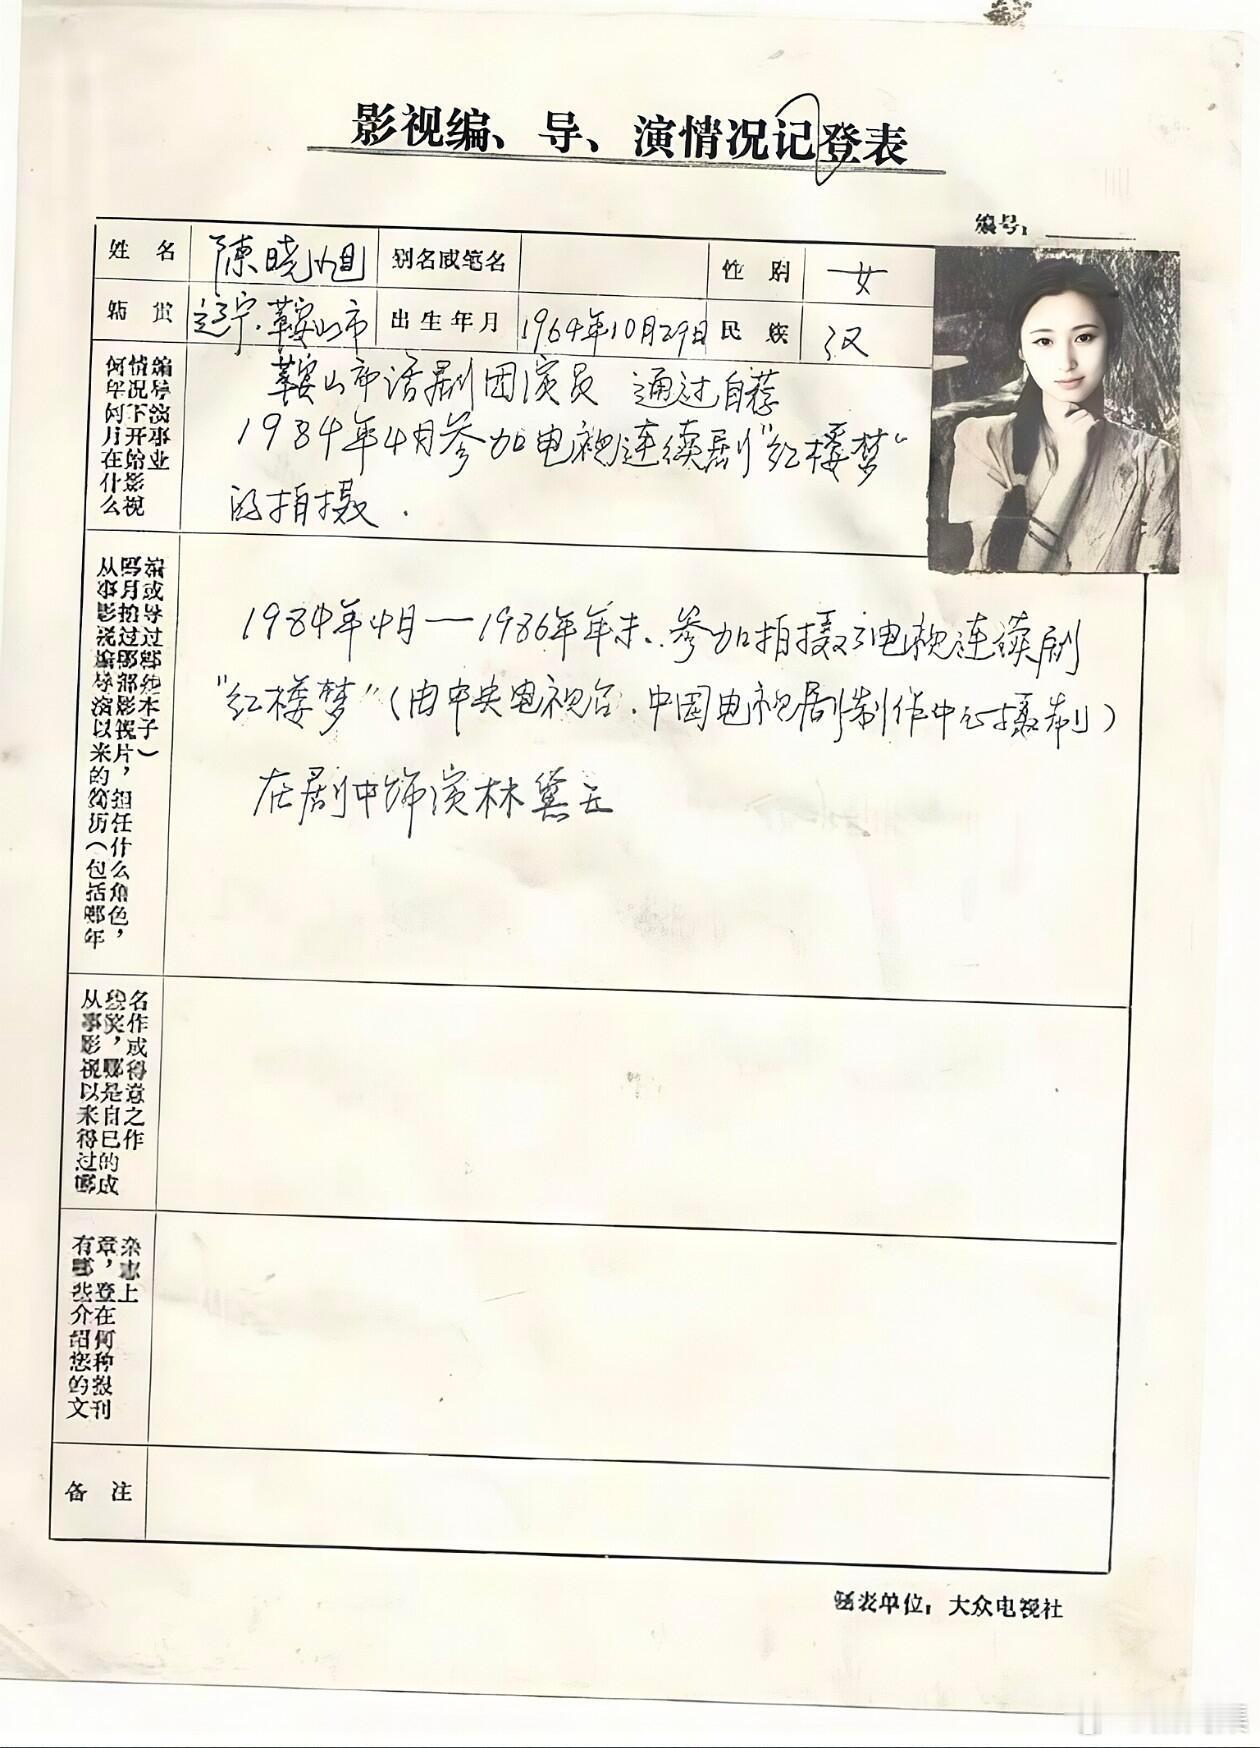 影视编、导、演情况记登表
编号：
姓名 陈晓旭 别名或笔名 性别 女
籍贯 辽宁.鞍山市 出生年月 1964年10月29日 民族 汉
何年何月在什么情况下开始影视编导演事业
鞍山市话剧团演员 通过自荐
1984年4月参加电视连续剧"红楼梦"
的拍摄.
从事影视编导演以来的简历（包括哪年
哪月拍过哪部影视片，担任什么角色，
编或导过哪些本子）
1984年4月一1986年年末.参加拍摄了电视连续剧
"红楼梦"（由中央电视台.中国电视剧制作中心摄制）
在剧中饰演林黛玉
从事影视以来得过哪
些奖，哪是自己的成
名作或得意之作
有哪些介绍您的文
章，登在何种报刊
杂志上
备注
填表单位：大众电视社